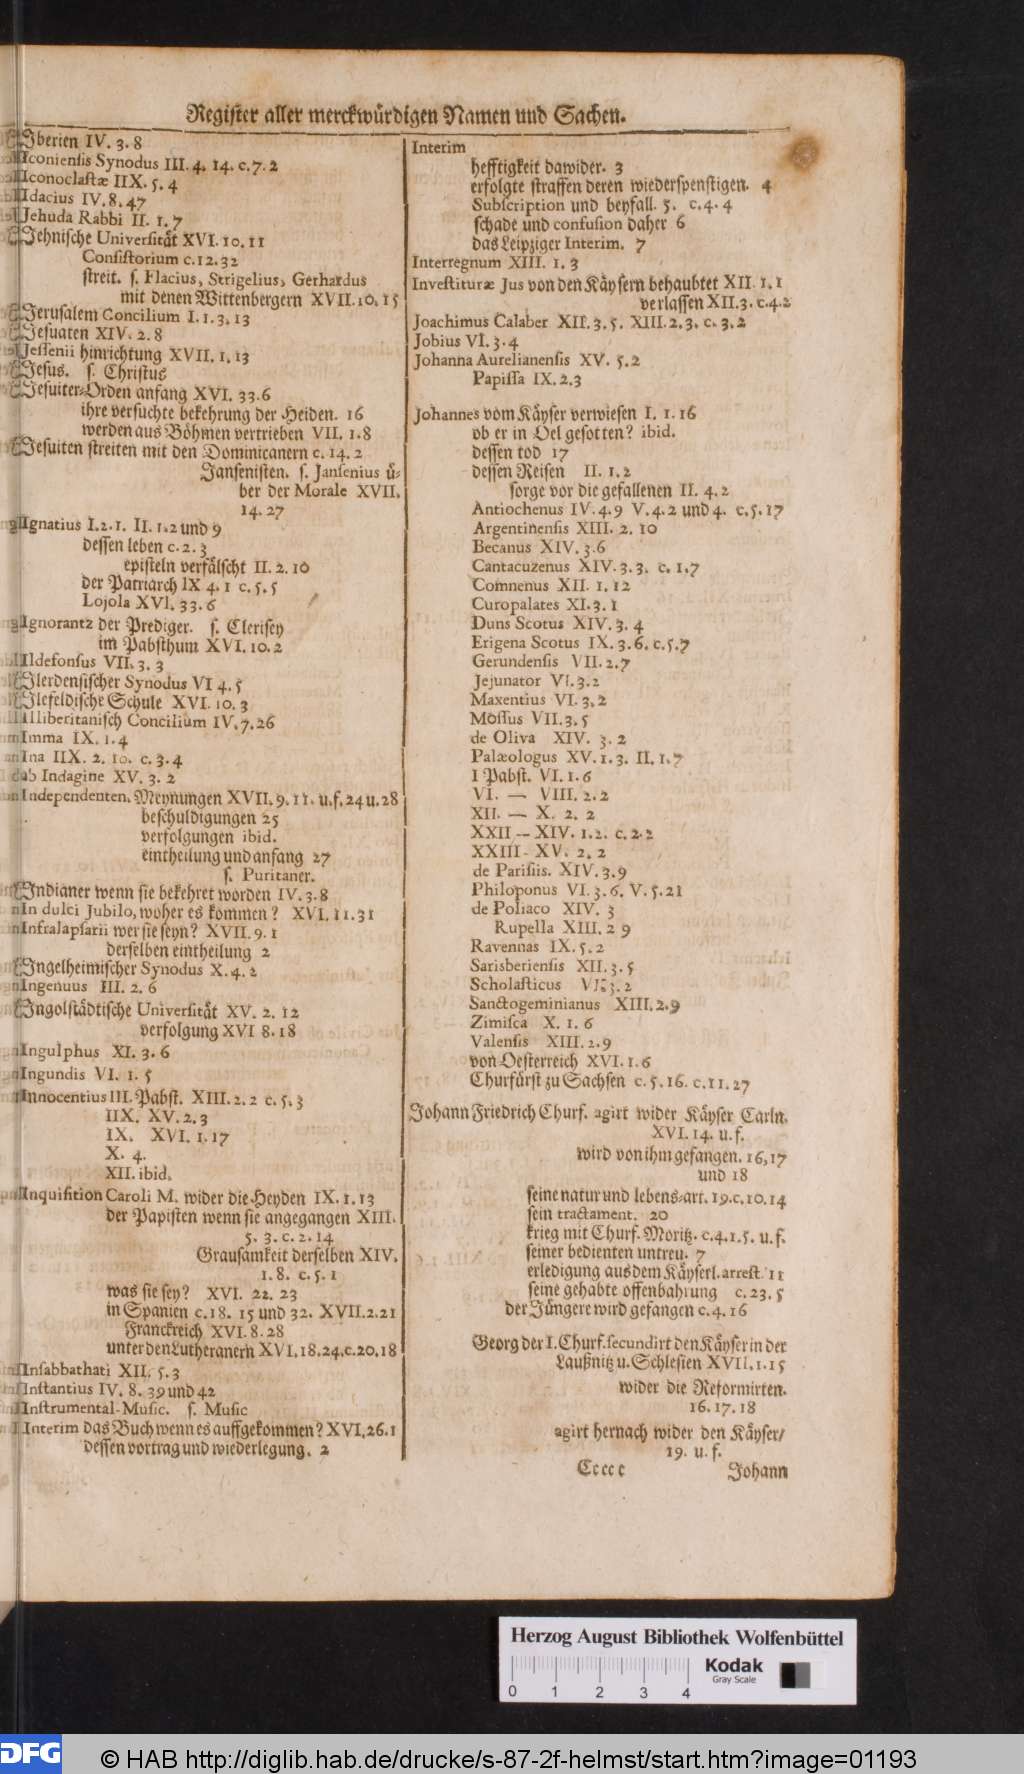 Register aller merckwürdigen Namen und Sachen.
Iberien IV. 3. 8
Iconiensis Synodus III. 4. 14. c. 7. 2
Iconoclastæ IIX. 5. 4
Idacius IV. 8. 47
Jehuda Rabbi II. 1. 7
Jehnische Universität XVI. 10. 11
Consistorium c. 12. 32
streit. s. Flacius, Strigelius, Gerhardus
mit denen Wittenbergern XVII. 10. 15
Jerusalem Concilium I. 1. 3. 13
Jesuaten XIV. 2. 8
Jessenii hinrichtung XVII. 1. 13
Jesus. s. Christus
Jesuiter-Orden anfang XVI. 33. 6
ihre versuchte bekehrung der Heiden. 16
werden aus Böhmen vertrieben VII. 1. 8
Jesuiten streiten mit den Dominicanern c. 14. 2
Jansenisten. s. Jansenius ü-
ber der Morale XVII.
14. 27
Ignatius I. 2. 1. II. 1. 2 und 9
dessen leben c. 2. 3
episteln verfälscht II. 2. 10
der Patriarch IX 4. 1 c. 5. 5
Lojola XVI. 33. 6
Ignorantz der Prediger. s. Clerisey
im Pabsthum XVI. 10. 2
Ildefonsus VII. 3. 3
Ilerdensischer Synodus VI 4. 5
Ilefeldische Schule XVI. 10. 3
Illiberitanisch Concilium IV. 7. 26
Imma IX. 1. 4
Ina IIX. 2. 10. c. 3. 4
ab Indagine XV. 3. 2
Independenten. Meynungen XVII. 9. 11. u. f. 24 u. 28
beschuldigungen 25
verfolgungen ibid.
eintheilung und anfang 27
s. Puritaner.
Indianer wenn sie bekehret worden IV. 3. 8
In dulci Jubilo, woher es kommen? XVI. 11. 31
Infralapsarii wer sie seyn? XVII. 9. 1
derselben eintheilung 2
Ingelheimischer Synodus X. 4. 2
Ingenuus III. 2. 6
Ingolstädtische Universität XV. 2. 12
verfolgung XVI 8. 18
Ingulphus XI. 3. 6
Ingundis VI. 1. 5
Innocentius III. Pabst. XIII. 2. 2 c. 5. 3
IIX. XV. 2. 3
IX. XVI. 1. 17
X. 4.
XII. ibid.
Inquisition Caroli M. wider die Heyden IX. 1. 13
der Papisten wenn sie angegangen XIII.
5. 3. c. 2. 14
Grausamkeit derselben XIV.
1. 8. c. 5. 1
was sie sey? XVI. 22. 23
in Spanien c. 18. 15 und 32. XVII. 2. 21
Franckreich XVI. 8. 28
unter den Lutheranern XVI. 18. 24. c. 20. 18
Insabbathati XII. 5. 3
Instantius IV. 8. 39 und 42
Instrumental-Music. s. Music
Interim das Buch wenn es auffgekommen? XVI. 26. 1
dessen vortrag und wiederlegung. 2
Interim
hefftigkeit dawider. 3
erfolgte straffen deren wiederspenstigen. 4
Subscription und beyfall. 5. c. 4. 4
schade und confusion daher 6
das Leipziger Interim. 7
Interregnum XIII. 1. 3
Investituræ Jus von den Käysern behaubtet XII. 1. 1
verlassen XII. 3. c. 4. 2
Joachimus Calaber XII. 3. 5. XIII. 2. 3. c. 3. 2
Jobius VI. 3. 4
Johanna Aurelianensis XV. 5. 2
Papissa IX. 2. 3
Johannes vom Käyser verwiesen I. 1. 16
ob er in Oel gesotten? ibid.
dessen tod 17
dessen Reisen II. 1. 2
sorge vor die gefallenen II. 4. 2
Antiochenus IV. 4. 9 V. 4. 2 und 4. c. 5. 17
Argentinensis XIII. 2. 10
Becanus XIV. 3. 6
Cantacuzenus XIV. 3. 3. c. 1. 7
Comnenus XII. 1. 12
Curopalates XI. 3. 1
Duns Scotus XIV. 3. 4
Erigena Scotus IX. 3. 6. c. 5. 7
Gerundensis VII. 2. 7
Jejunator VI. 3. 2
Maxentius VI. 3. 2
Mossus VII. 3. 5
de Oliva XIV. 3. 2
Palæologus XV. 1. 3. II. 1. 7
I Pabst. VI. 1. 6
VI. — VIII. 2. 2
XII. — X. 2. 2
XXII — XIV. 1. 2. c. 2. 2
XXIII - XV. 2. 2
de Parisiis. XIV. 3. 9
Philoponus VI. 3. 6. V. 5. 21
de Poliaco XIV. 3
Rupella XIII. 2 9
Ravennas IX. 5. 2
Sarisberiensis XII. 3. 5
Scholasticus VI. 3. 2
Sanctogeminianus XIII. 2. 9
Zimisca X. 1. 6
Valensis XIII. 2. 9
von Oesterreich XVI. 1. 6
Churfürst zu Sachsen c. 5. 16. c. 11. 27
Johann Friedrich Churf. agirt wider Käyser Carln.
XVI. 14. u. f.
wird von ihm gefangen. 16, 17
und 18
seine natur und lebens-art. 19. c. 10. 14
sein tractament. 20
krieg mit Churf. Moritz. c. 4. 1. 5. u. f.
seiner bedienten untreu. 7
erledigung aus dem Käyserl. arrest. 11
seine gehabte offenbahrung c. 23. 5
der Jüngere wird gefangen c. 4. 16
Georg der I. Churf. secundirt den Käyser in der
Laußnitz u. Schlesien XVII. 1. 15
wider die Reformirten.
16. 17. 18
agirt hernach wider den Käyser/
19. u. f.
Ccccc
Johann
Herzog August Bibliothek Wolfenbüttel
Kodak
Gray Scale
0 1 2 3 4
DFG
© HAB http://diglib.hab.de/drucke/s-87-2f-helmst/start.htm?image=01193